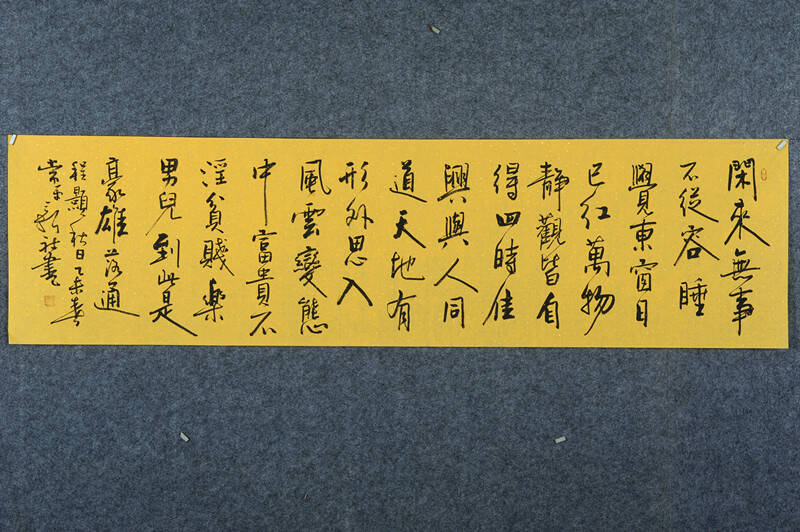 閑來無事
不從容睡
覺東窗日
已紅萬物
静觀皆自
得四時佳
興與人同
道天地有
形外思入
風雲變態
中富貴不
淫貧賤樂
男兒到此是
豪雄落通
程顥秋日乙未春
社書